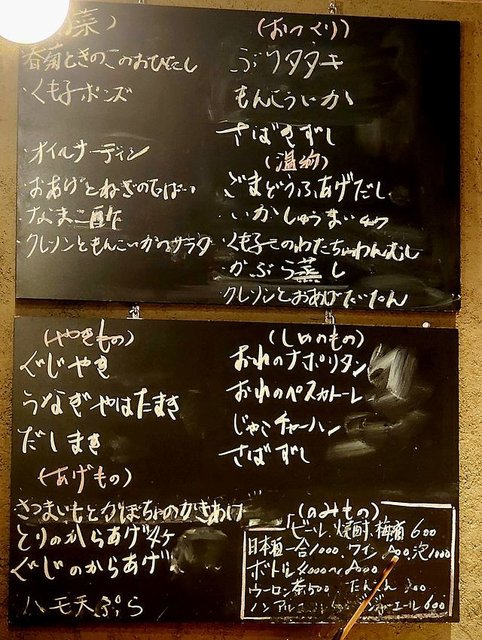 菜)
春菊ときのこのおひたし
・くも子ポンズ
・オイルサーディン
・おあげとねぎのてっぱい
・なまこ酢
・クレソンともんこいかのサラダ
(おつくり)
ぶりタタキ
もんこういか
さばきずし
(温物)
ごまどうふあげだし
・いかしゅうまい4ケ
・くも子このわたちゃわんむし
・かぶら蒸し
・クレソンとおあげたいたん
(やきもの)
ぐじやき
うなぎやはたまき
だしまき
(あげもの)
さつまいもとかぼちゃのかきあげ
とりのからあげ4ケ
ぐじのからあげ
ハモ天ぷら
(しめのもの)
おれのナポリタン
おれのペスカトーレ
じゃこチャーハン
さばずし
(のみもの)
ビール、焼酎、梅酒 600
日本酒一合1000、ワイン 泡1000
ボトル4000〜
ウーロン茶500
ノンアル ジンジャーエール600